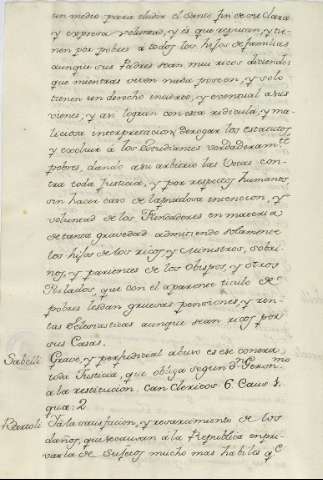 un medio para eludir el Santo fin de su clara
y expresa voluntad, y es que reputan, y tie-
nen por pobres a todos los hijos de familias
aunque sus Padres sean muy ricos diciendo
que mientras viven nada poseen, y solo
tienen un derecho incierto, y eventual a sus
vienes, y asi logran con esta ridicula, y ma-
liciosa interpretacion derogar los estatutos
y excluir à los Estudiantes verdaderam.te
pobres, dando a su arbitrio las Vecas con-
tra toda Justicia, y por respetos humanos
sin hacer caso de la piadosa intencion, y
voluntad de los Fundadores en materia
de tanta gravedad admitiendo solamente
los hijos de los ricos, y Ministros, sobri-
nos, y parientes de los Obispos, y otros
Prelados, que con el aparente titulo de
pobres les dan gruesas pensiones, y ren-
tas Eclesiasticas aunque sean ricos por
sus Casas.
Grave, y perjudicial abuso es ese contra
toda Justicia, que obliga segun S.n Geron.mo
a la restitucion. Can Clericos 6. Caus 1.
qua: 2
la satisfacion, y resarcimiento de los
daños, que se causan à la Republica en pri-
varla de Sujetos mucho mas habiles q.e